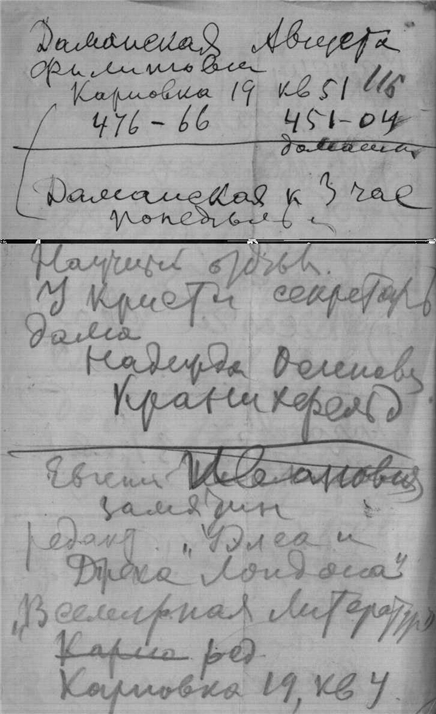 Даманская Августа
Филиповн
Карповка 19 кв 51 115
476-66 451-04
домашн
Даманская к 3 час
понедельн
Научный отдел
У Кристи секретарь
дама
Надежда Осиповн
Кранихфельд
Евгени Ивановия
Замятин
редакт „Уэлса и
Джека Лондона"
„Всемирная Литератур"
Карпо ред
Карповка 19, кв 4